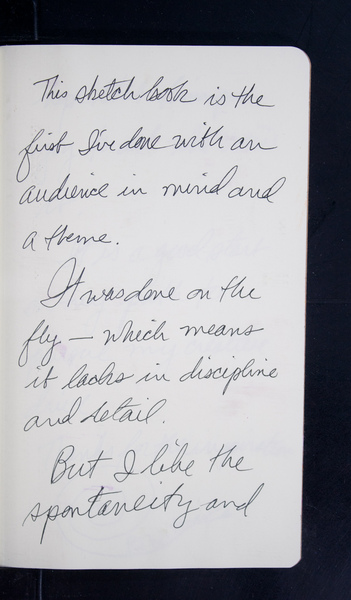 This sketch book is the
first I've done with an
audience in mind and
a theme.
It was done on the
fly — which means
it lacks in discipline
and detail.
But I like the
spontaneity and